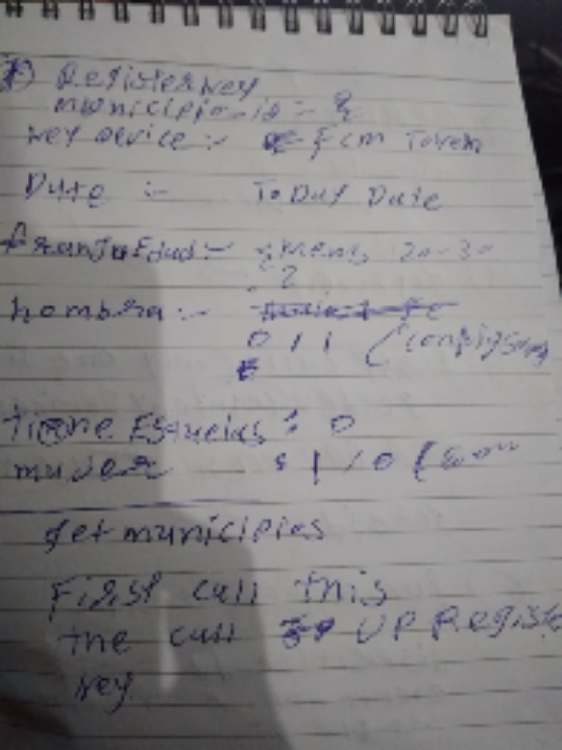 Registerkey
municipio-id :- 8
key device :- Fcm Token
Date :- ToDay Date
: Means 20-30
2
hombra :-
0 / 1 (
tiene Escuelas : 0
mujer : 1 / 0 (
get municipios
First call this
the call UP Registe
key